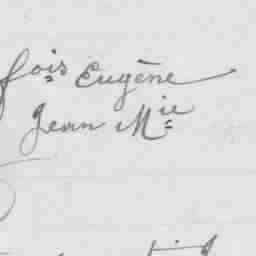 fois Eugène
Jean Mie